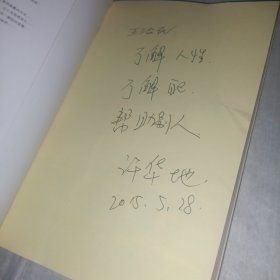 了解人性.
了解自己.
帮助别人
许华地.
2015.5.28.